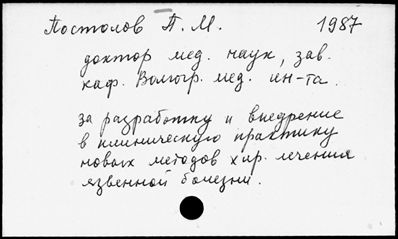 Постолов П. М. 1987
доктор мед. наук, зав.
каф. Волгогр. мед. ин-та.
за разработку и внедрение
в клиническую практику
новых методов хир. лечения
язвенной болезни.